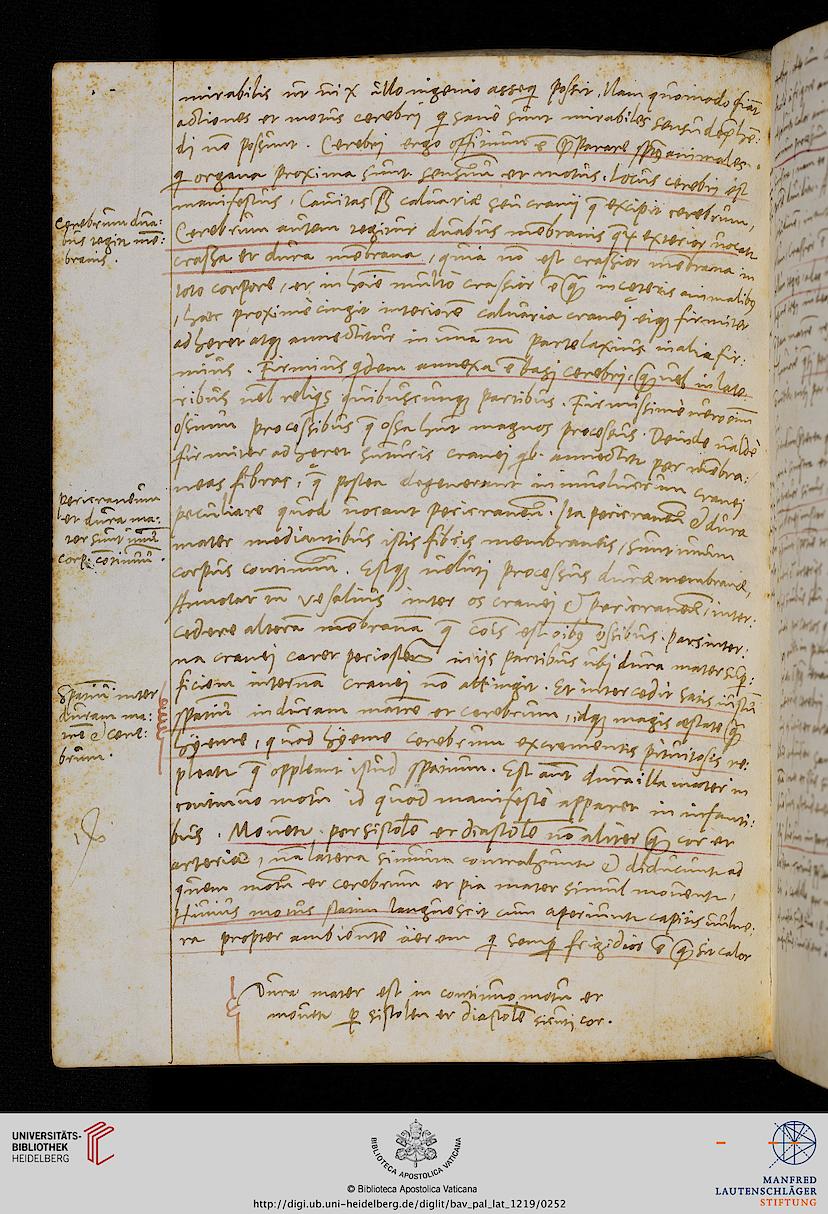 mirabilis ut vix illo ingenio assequi possit. Nam quomodo fiat
actiones et motus cerebri qui sane sunt mirabiles sensu depͬhē
di nō possunt. Cerebri ergo officium ē p̃parare spūs animales
qi organa proxima sunt sensuum et motus. Locus cerebri est
manifestus, Cavitas calvariæ seu cranij q̄ excipit cerebrum,
Cerebrum autem tegitur duabus mebranis quaꝝ exterior vocatr
crassa et dura mēbrana, quia nō est crassior membrana in
toto corpore, et in hoīe multo crassior ē quā in ceteris animalibꝰ
, haec proxime cingit interiorē calvaria cranei eiqꝫ firmiter
adheret atqꝫ annectitur in una tn̄ parte laxius in alia fir:
mius. Firmius qdem annexa ē basi cerebri, quā vel in late
ribus vel reliqs quibuscunqꝫ partibus. Firmissime vero eim
ossium processibus q̄ ossa hnt magnos processus. Deinde valde
firmiter adheret suturis cranei qb. annectitr per mēbra:
neas fibras, q̄ postea degenerant in involucrum cranei
peculiare quod vocant pericraneū. Ita pericraneū & dura
mater mediantibus istis fibris membraneis, sunt unum
corpus continuum. Estqꝫ veluti processus durae membranæ,
Annotat tn̄ Vesalius inter os cranei & pericraneū, inter:
cedere alterā mēbranā q̄ cōis est oibꝰ ossibus. Pars inter:
na cranei caret periosteo in ijs partibus ubi dura mater supͬ:
ficiem internā cranei nō attingit. Et intercedit satis iustū
spatiū in duram matrē et cerebrum, idqꝫ magis æstate quā
hyeme, quod hyeme cerebrum excrementis pituitosis re:
pleatr q̄ oppleant istud spatium. Est aut dura illa mater in
continuo motu id quod manifeste apparet in infanti:
bus. Movetr per sistolē et diastolē nō aliter quā cor et
arteriæ, nā latera sinuum contrahuntr & diducuntr ad
quem motū et cerebrum et pia mater simul moventr,
Huius motus statim languescit cum aperiuntr capitis vulne:
ra propter ambientē äerem qi semp frigidior ē quā sit calor
Dura mater est in continuo motu et
movetr per sistolen et diastolē sicuti cor.
Cerebrum dua:
bus tegitr me:
branis.
Pericraneum
et dura ma:
ter sunt unū
corpꝰ cōtinuū.
Spatiū inter
duram ma:
trē & cere:
brum.
UNIVERSITÄTS-
BIBLIOTHEK
HEIDELBERG
BIBLIOTECA APOSTOLICA VATICANA
© Biblioteca Apostolica Vaticana
http://digi.ub.uni-heidelberg.de/diglit/bav_pal_lat_1219/0252
MANFRED
LAUTENSCHLÄGER
STIFTUNG